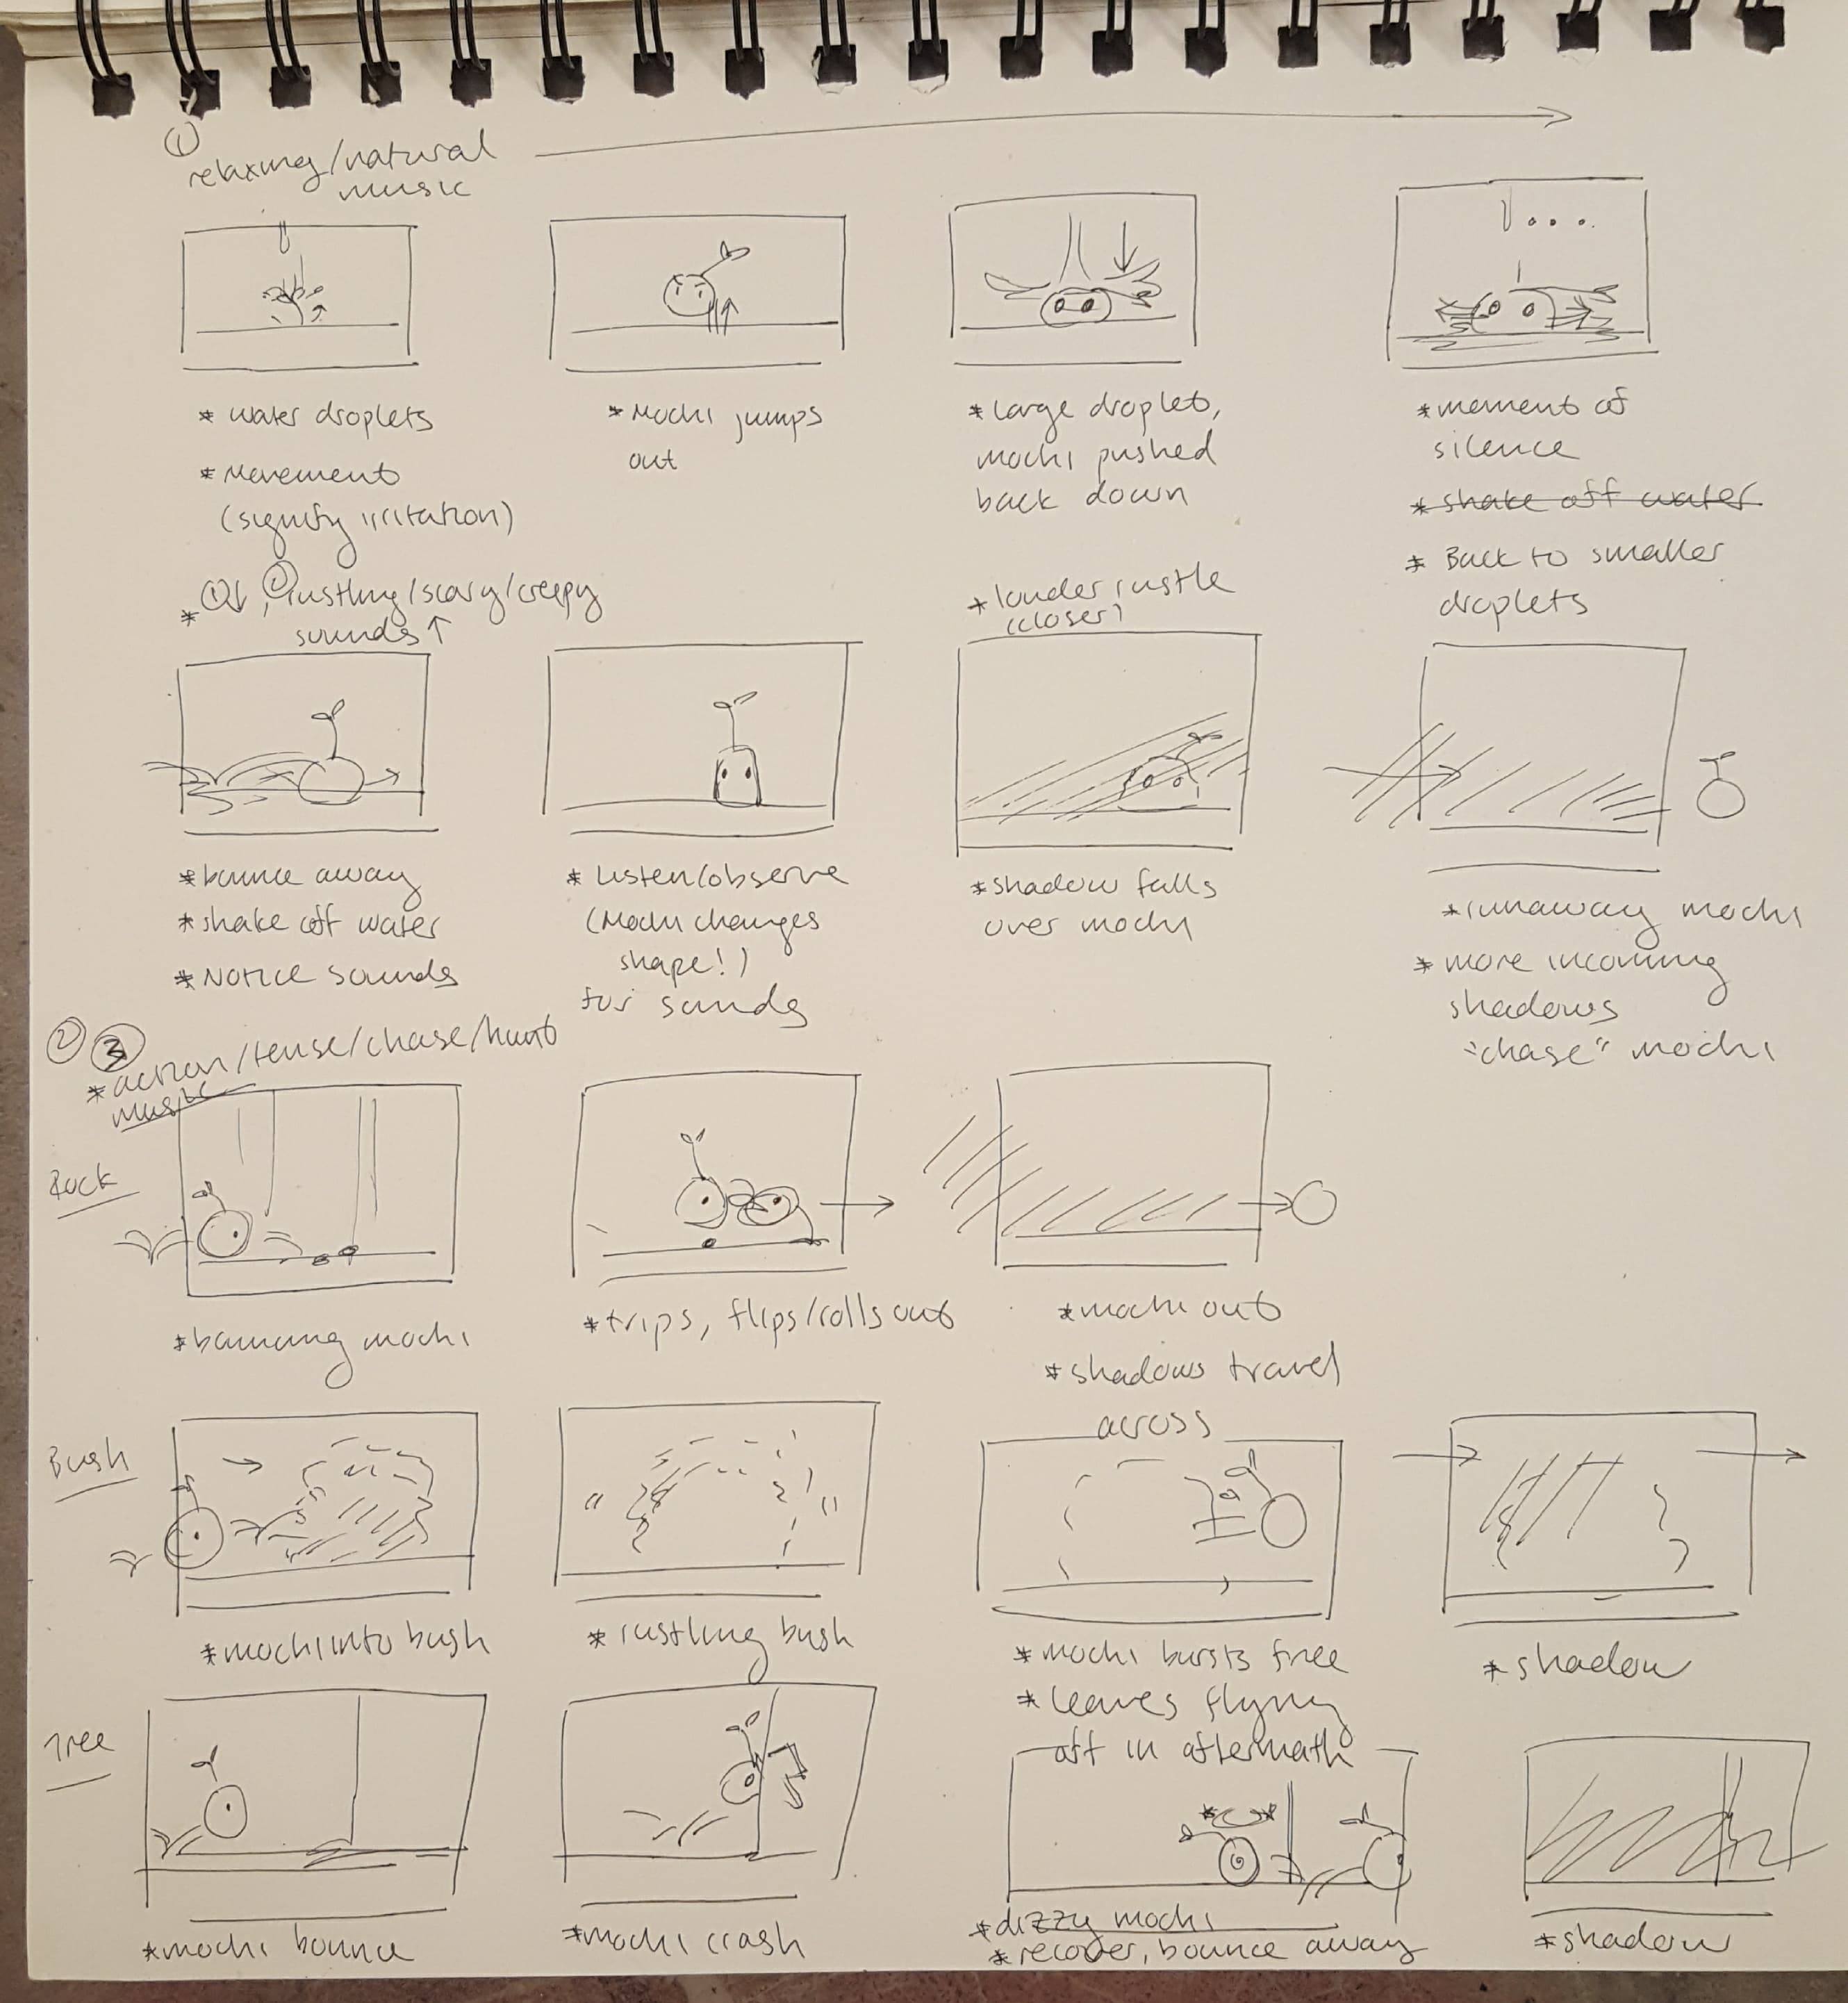 ①
relaxing/natural
music
* water droplets
* Movement
(signify irritation)
* Mochi jumps
out
* Large droplet,
mochi pushed
back down
* moment of
silence
* shake off water
* Back to smaller
droplets
* ①↓, ②rustling/scary/creepy
sounds ↑
* louder rustle
(closer)
* bounce away
* shake off water
* Notice sounds
* Listen/observe
(Mochi changes
shape!)
for sounds
* shadow falls
over mochi
* runaway mochi
* more incoming
shadows
"chase" mochi
② ③
* action/tense/chase/hunt
music
Rock
* bouncing mochi
* trips, flips/rolls out
* mochi out
* shadows travel
across
Bush
* mochi into bush
* rustling bush
* mochi bursts free
* leaves flying
off in aftermath
* shadow
Tree
* mochi bounce
* mochi crash
* dizzy mochi
* recover, bounce away
* shadow